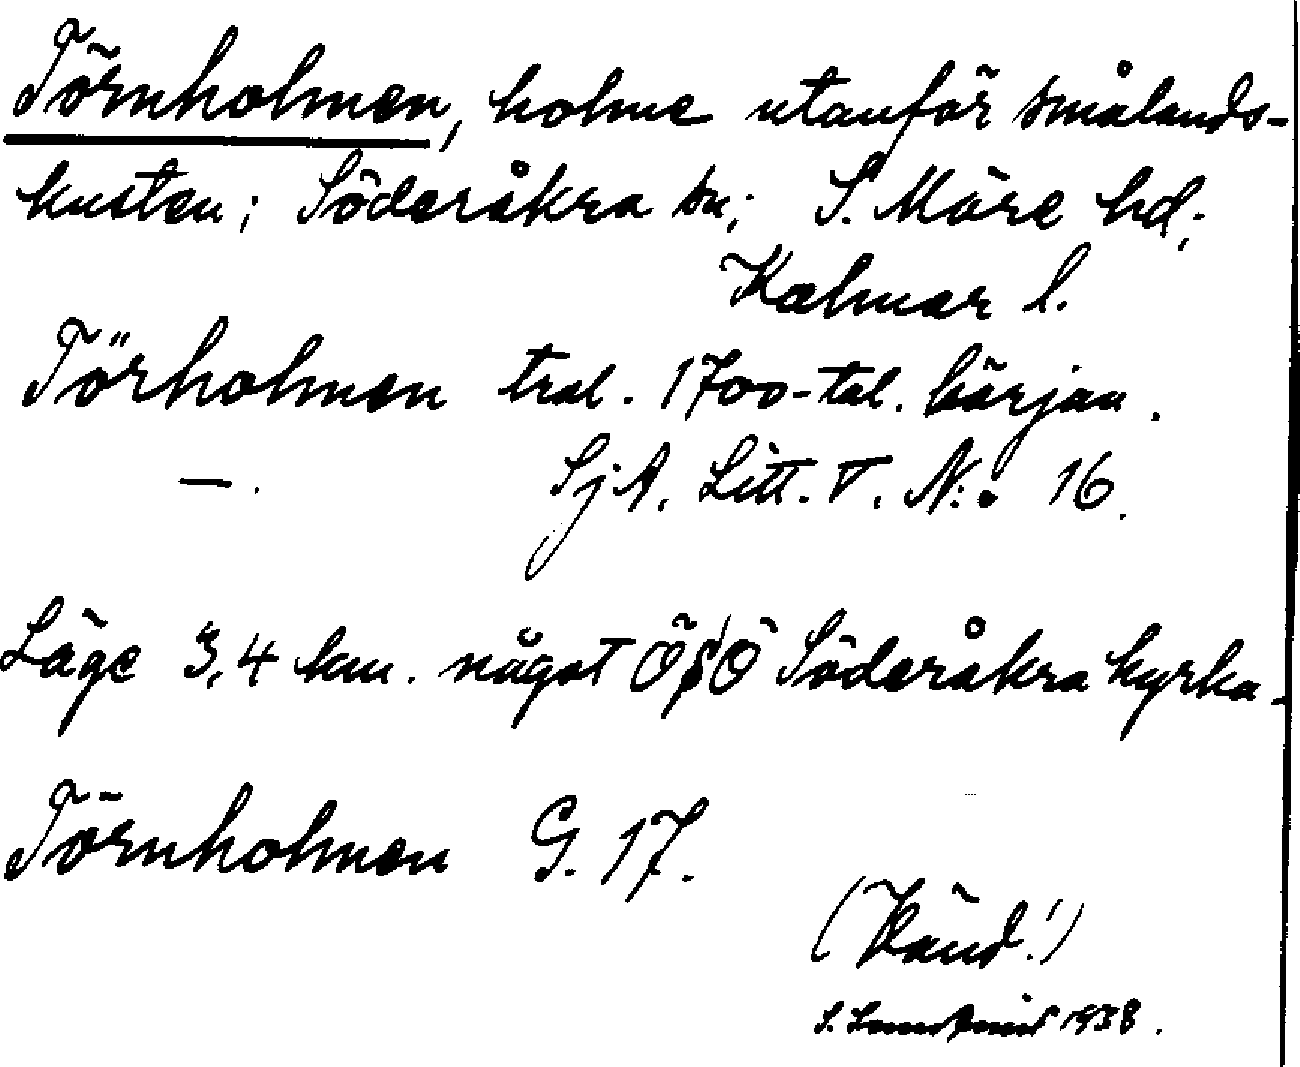 Törnholmen, holme utanför smålands-
kusten; Söderåkra sn; S. Möre hd;
Kalmar l.
Törholmen trol. 1700-tal. början.
—. SjA. Litt. V. N:o 16.
Läge 3,4 km. något ÖSÖ Söderåkra kyrka.
Törnholmen G. 17.
(Vänd!)
S. 1938.